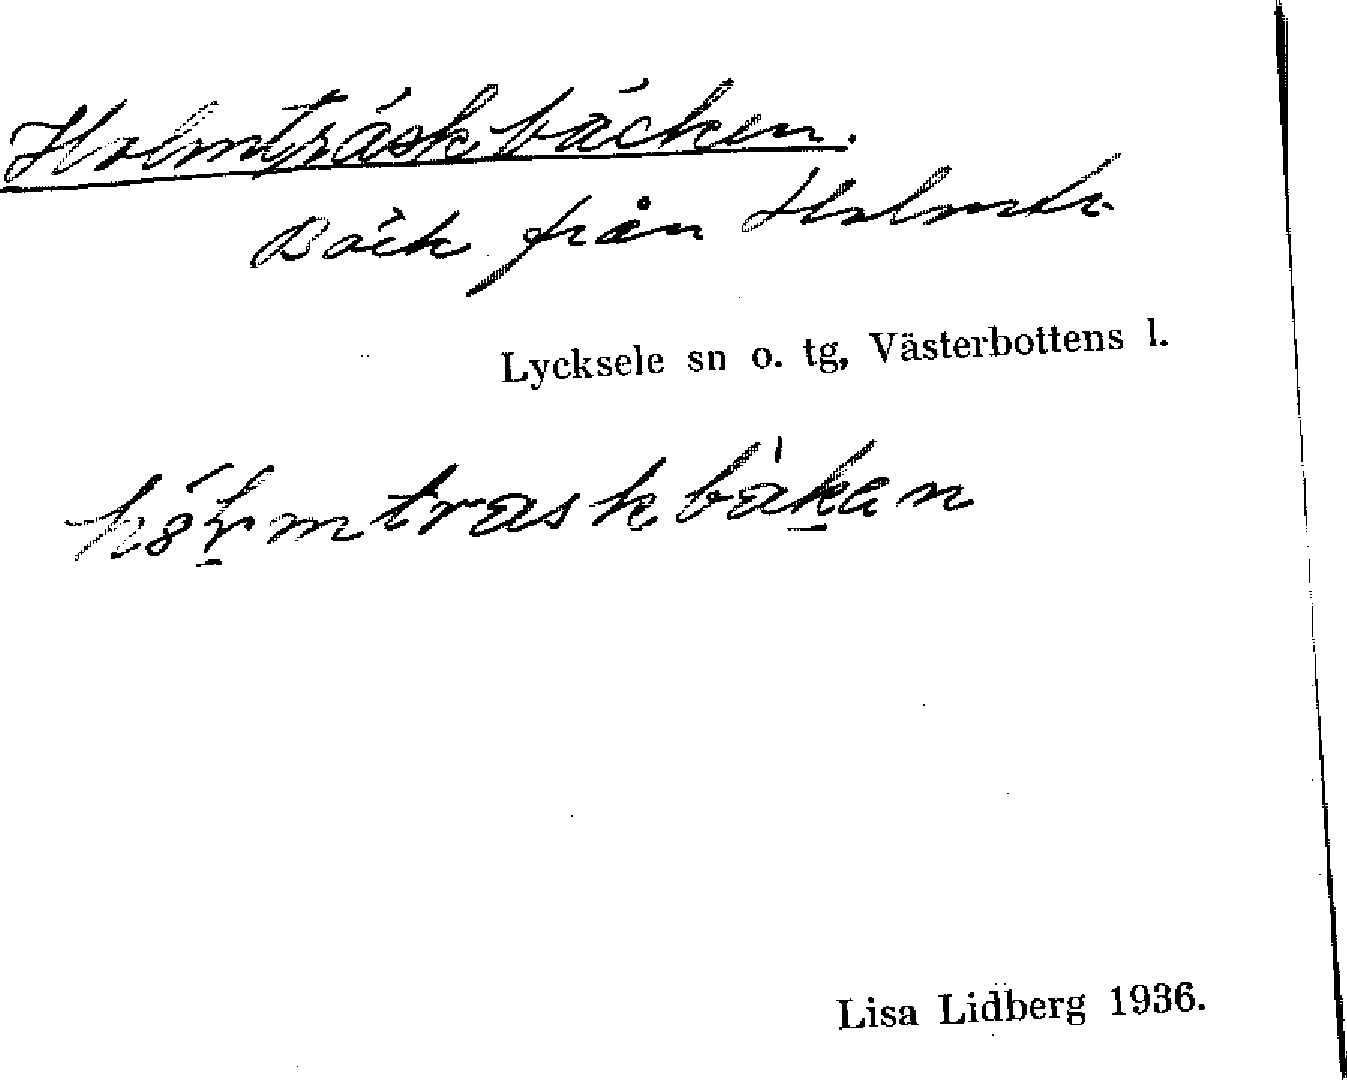 Holmträskbäcken.
Bäck från Holmtr.
Lycksele sn o. tg, Västerbottens l.
Lisa Lidberg 1936.